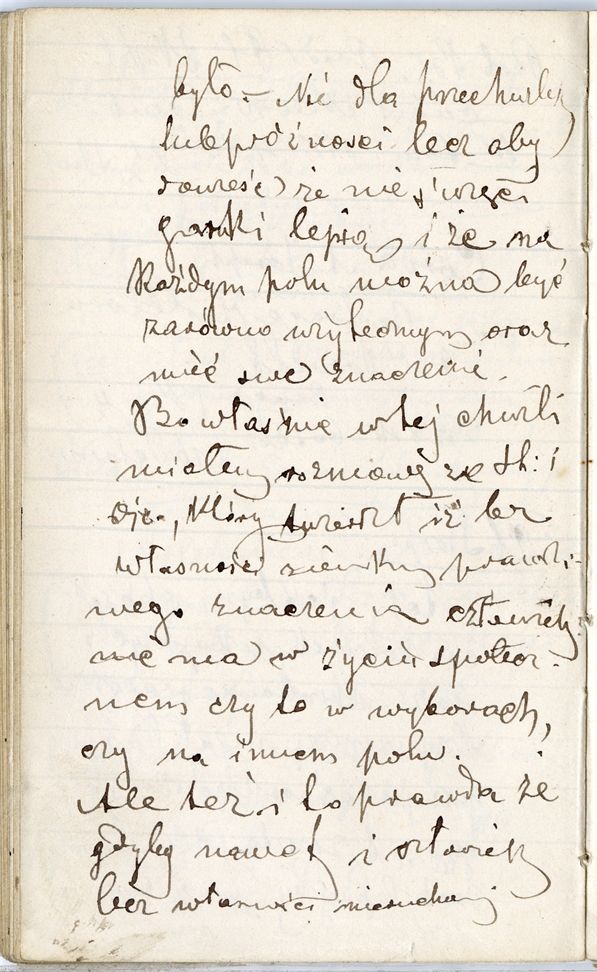 było. – Nie dla przechwałek
lub próżności lecz aby
dowieść, że nie święci
garnki lepią i że na
Każdym polu można być
zarówno użytecznym oraz
mieć swe znaczenie.
Bo właśnie w tej chwili
miałem rozmowę ze St: i
Ojc., Który twierdzi iż bez
własności ziemskiej prawdzi-
wego znaczenia człowiek
nie ma w życiu społecz-
nem czy to w wyborach,
czy na innem polu.
Ale też i to prawda że
gdyby nawet i człowiek
bez własności